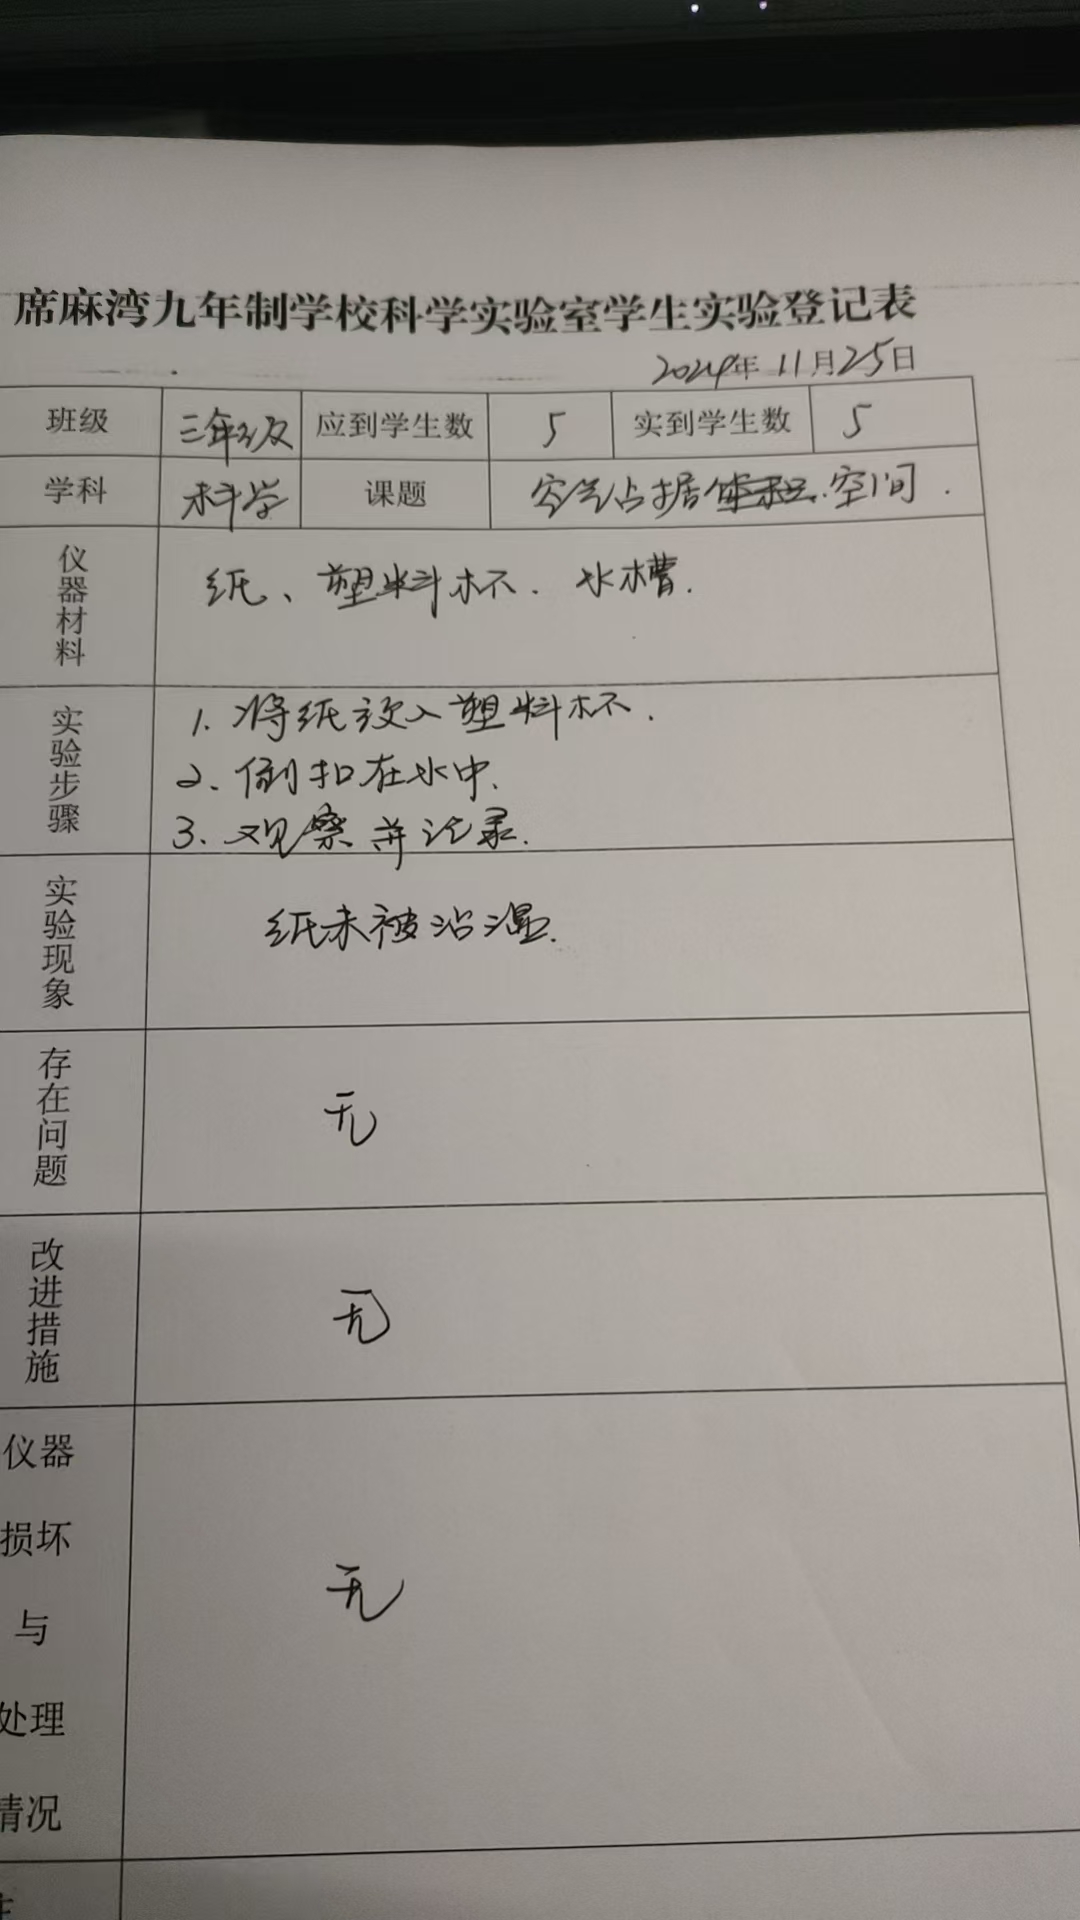 席麻湾九年制学校科学实验室学生实验登记表
2024年11月25日
班级 三年级 应到学生数 5 实到学生数 5
学科 科学 课题 空气占据体积.空间.
仪器材料 纸、塑料杯.水槽.
实验步骤
1.将纸放入塑料杯.
2.倒扣在水中.
3.观察并记录.
实验现象 纸未被沾湿.
存在问题 无
改进措施 无
仪器
损坏
与
处理
情况
无